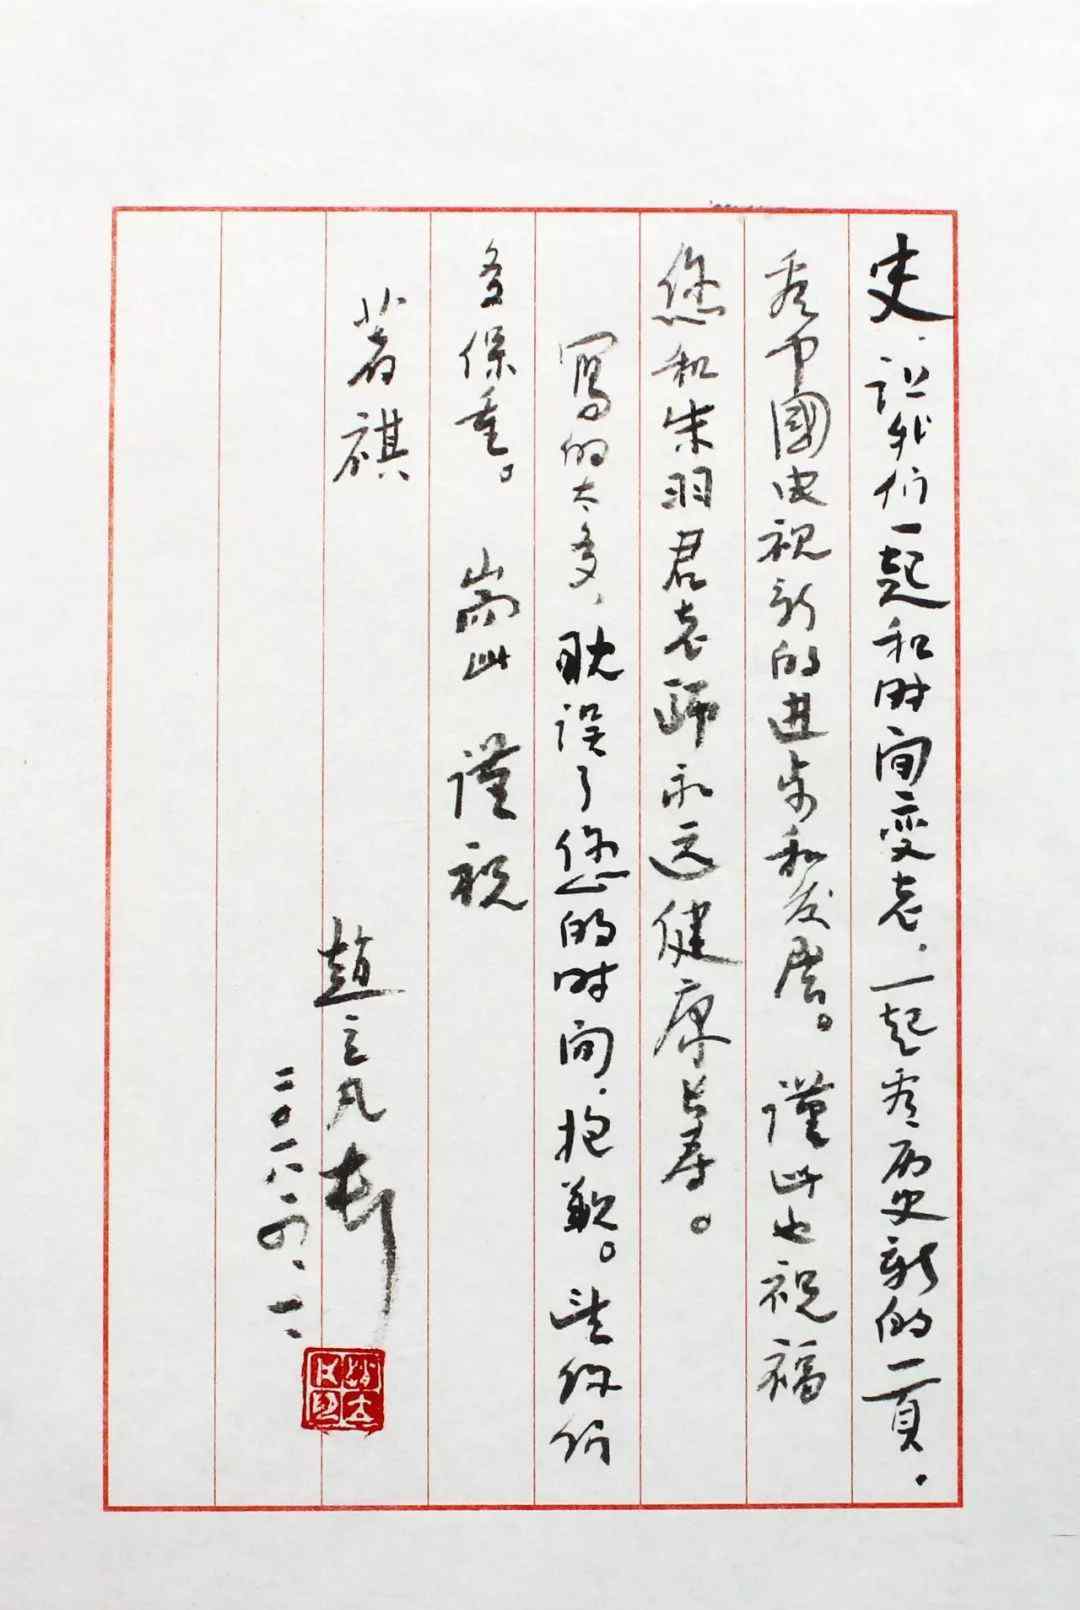 史，让我们一起和时间变老，一起看历史新的一页。
看中國电视新的进步和发展。谨此也祝福
您和朱羽君老师永远健康长寿。
寫的太多，耽误了您的时间，抱歉。望你们
多保重。 耑此 谨祝
著祺
趙立凡
二〇一八、四、一、